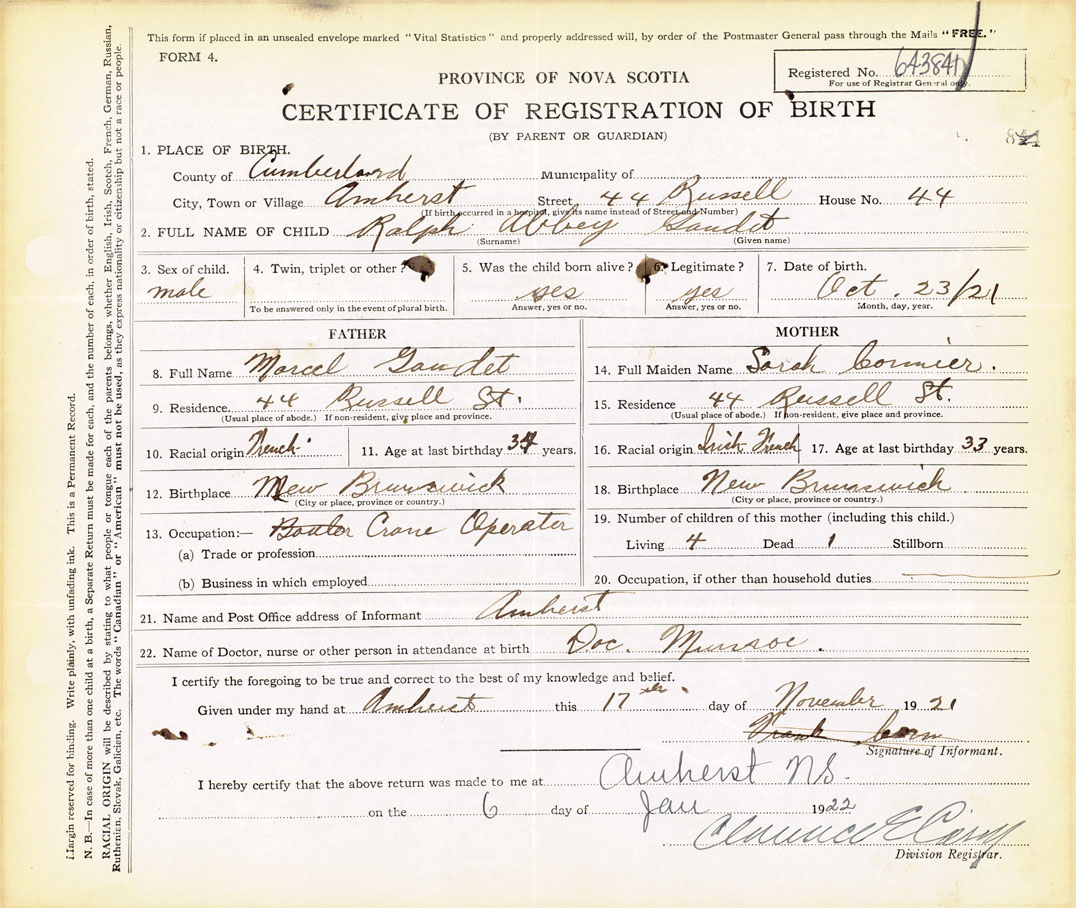 This form if placed in an unsealed envelope marked "Vital Statistics" and properly addressed will, by order of the Postmaster General pass through the Mails "FREE."
FORM 4.
PROVINCE OF NOVA SCOTIA
Registered No. 643841
For use of Registrar General only.
CERTIFICATE OF REGISTRATION OF BIRTH
(BY PARENT OR GUARDIAN)
1. PLACE OF BIRTH.
County of Cumberland Municipality of
City, Town or Village Amherst Street 44 Russell House No. 44
(If birth occurred in a hospital, give its name instead of Street and Number)
2. FULL NAME OF CHILD Ralph Abbey Gaudet
(Surname) (Given name)
3. Sex of child. male
4. Twin, triplet or other?
To be answered only in the event of plural birth.
5. Was the child born alive? yes
Answer, yes or no.
6. Legitimate? yes
Answer, yes or no.
7. Date of birth. Oct. 23/21
Month, day, year.
FATHER
8. Full Name Marcel Gaudet
9. Residence. 44 Russell St.
(Usual place of abode.) If non-resident, give place and province.
10. Racial origin French 11. Age at last birthday 34 years.
12. Birthplace New Brunswick
(City or place, province or country.)
13. Occupation:— Crane Operater
(a) Trade or profession
(b) Business in which employed
MOTHER
14. Full Maiden Name Sarah Cormier.
15. Residence 44 Russell St.
(Usual place of abode.) If non-resident, give place and province.
16. Racial origin Irish French 17. Age at last birthday 33 years.
18. Birthplace New Brunswick
(City or place, province or country.)
19. Number of children of this mother (including this child.)
Living 4 Dead 1 Stillborn
20. Occupation, if other than household duties
21. Name and Post Office address of Informant Amherst
22. Name of Doctor, nurse or other person in attendance at birth Doc. Munroe.
I certify the foregoing to be true and correct to the best of my knowledge and belief.
Given under my hand at Amherst this 17th day of November 1921
Frank
Signature of Informant.
I hereby certify that the above return was made to me at Amherst N.S.
on the 6 day of Jan 1922
Clarence E
Division Registrar.
Margin reserved for binding. Write plainly, with unfading ink. This is a Permanent Record.
N. B.—In case of more than one child at a birth, a Separate Return must be made for each, and the number of each, in order of birth, stated.
RACIAL ORIGIN will be described by stating to what people or tongue each of the parents belongs, whether English, Irish, Scotch, French, German, Russian,
Ruthenian, Slovak, Galician, etc. The words "Canadian" or "American" must not be used, as they express nationality or citizenship but not a race or people.